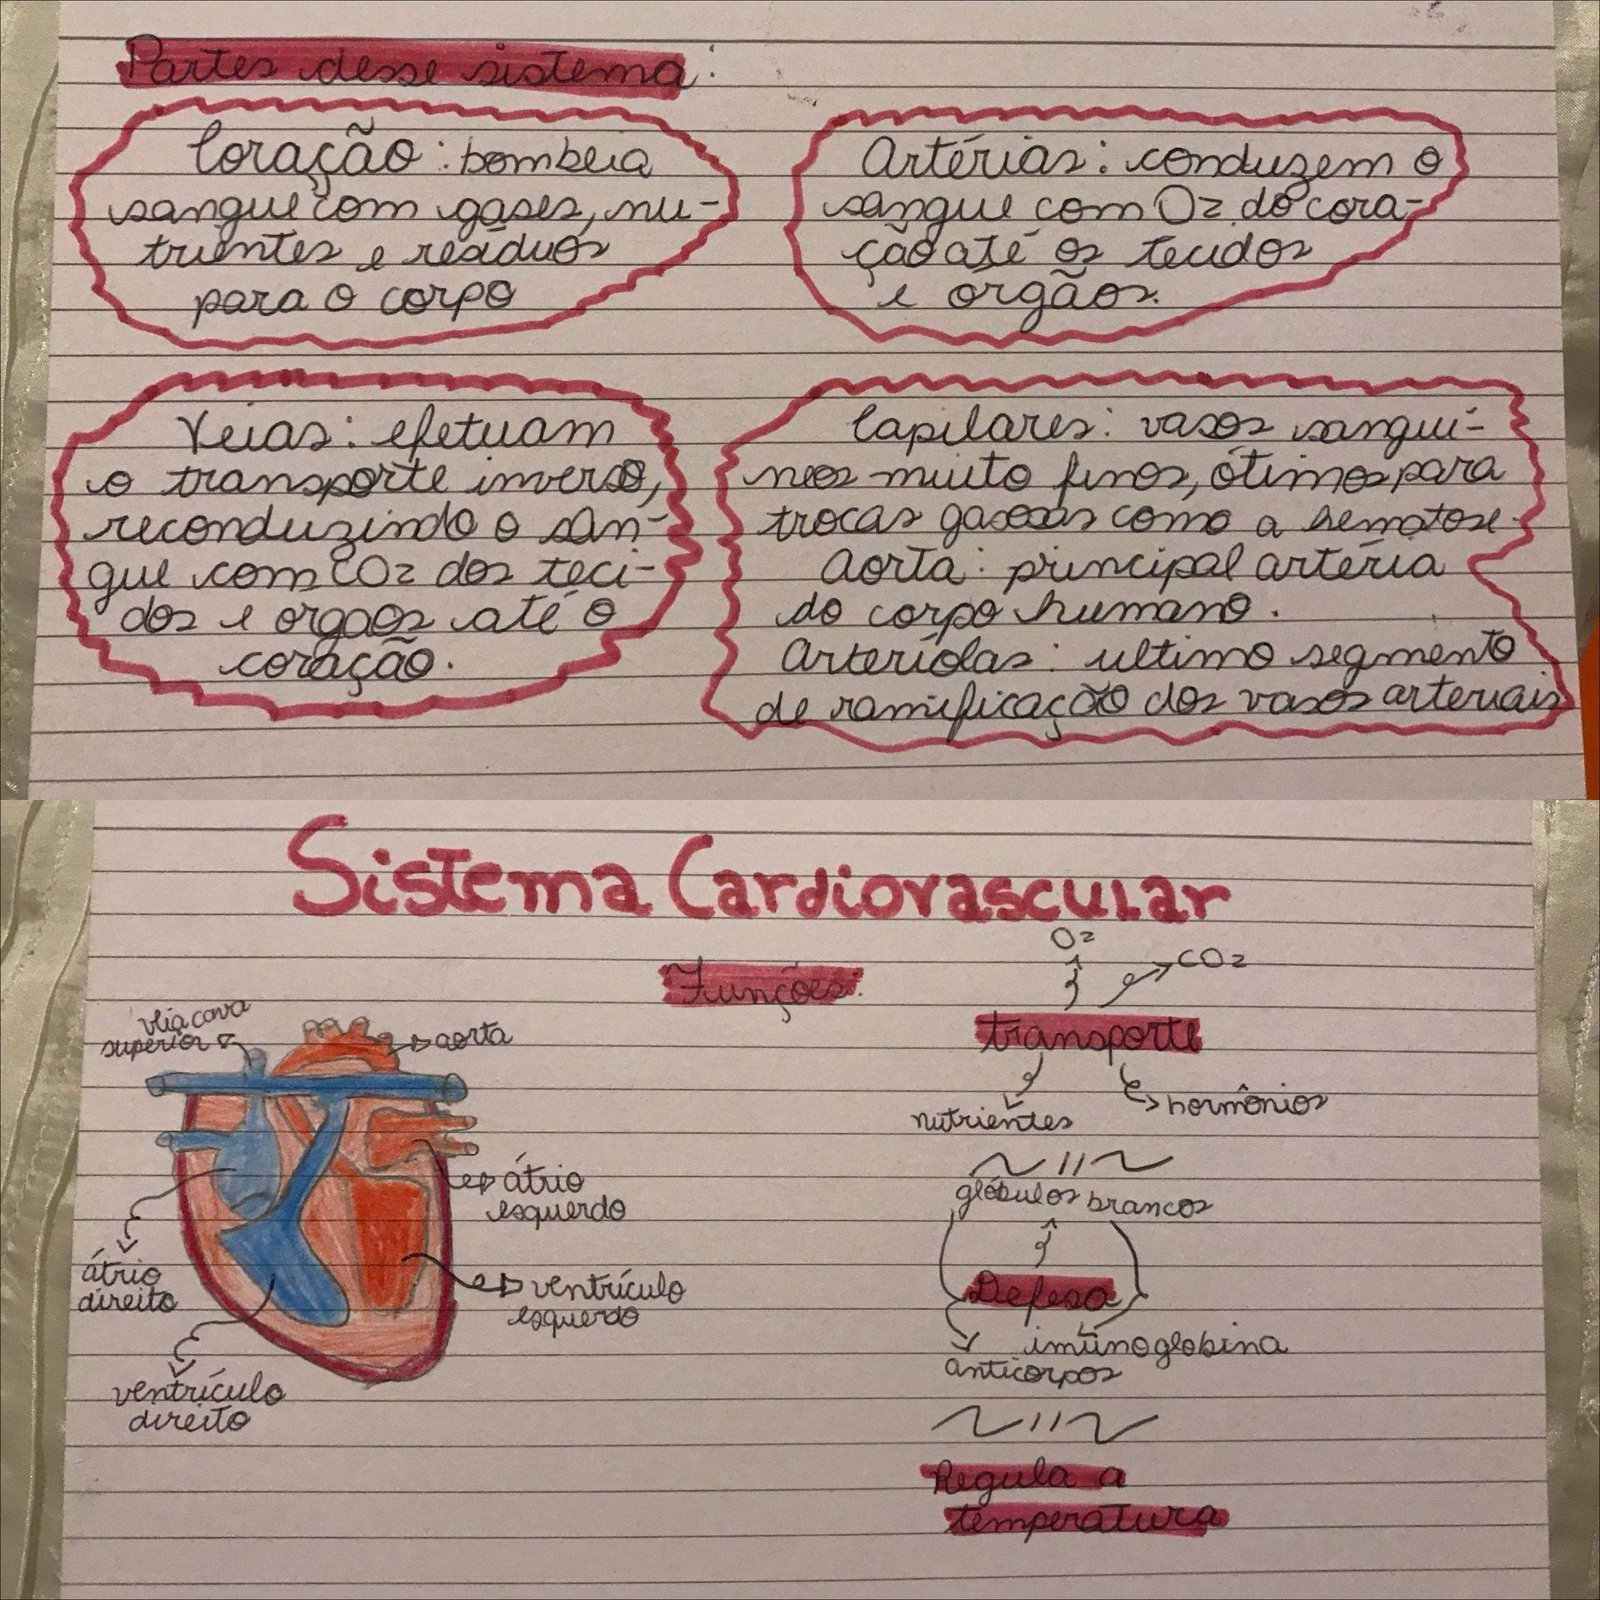 Partes desse sistema:
Coração: bombeia
sangue com gases, nu-
trientes e resíduos
para o corpo
Artérias: conduzem o
sangue com O2 do cora-
ção até os tecidos
e órgãos.
Veias: efetuam
o transporte inverso,
reconduzindo o san-
gue com CO2 dos teci-
dos e orgãos até o
coração.
Capilares: vasos sanguí-
neos muito finos, ótimos para
trocas gasosas como a hematose
Aorta: principal artéria
do corpo humano.
Arteríolas: ultimo segmento
de ramificação dos vasos arteriais
Sistema Cardiovascular
Funções:
O2
CO2
transporte
nutrientes
hormônios
glóbulos brancos
Defesa
imunoglobina
anticorpos
Regula a
temperatura
veia cava
superior
aorta
átrio
esquerdo
ventrículo
esquerdo
átrio
direito
ventrículo
direito